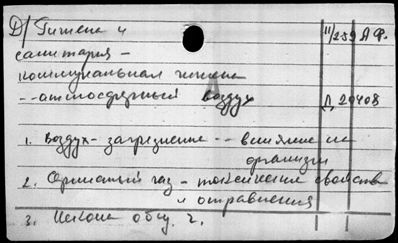 Д/ Гигиена и 11/259 А Ф.
санитария –
коммунальная гигиена
-- атмосферный воздух Д 20408
1. Воздух - загрязнение -- влияние на
организм
2. газ - токсические свойства
и отравления
3.